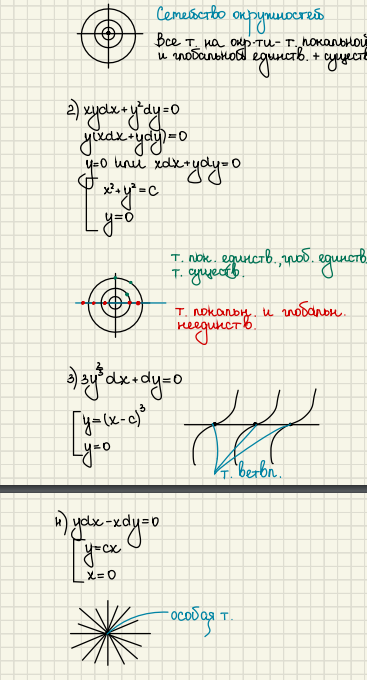 Семейство окружностей
Все т. на окр-ти - т. локальной
и глобальной единств. + существ
2) xydx + y²dy = 0
y(xdx + ydy) = 0
y=0 или xdx + ydy = 0
x² + y² = c
y = 0
т. лок. единств., глоб. единств.
т. существ.
т. локальн. и глобальн.
неединств.
3) 3y^(2/3) dx + dy = 0
y = (x - c)³
y = 0
т. ветвл.
4) ydx - xdy = 0
y = cx
x = 0
особая т.